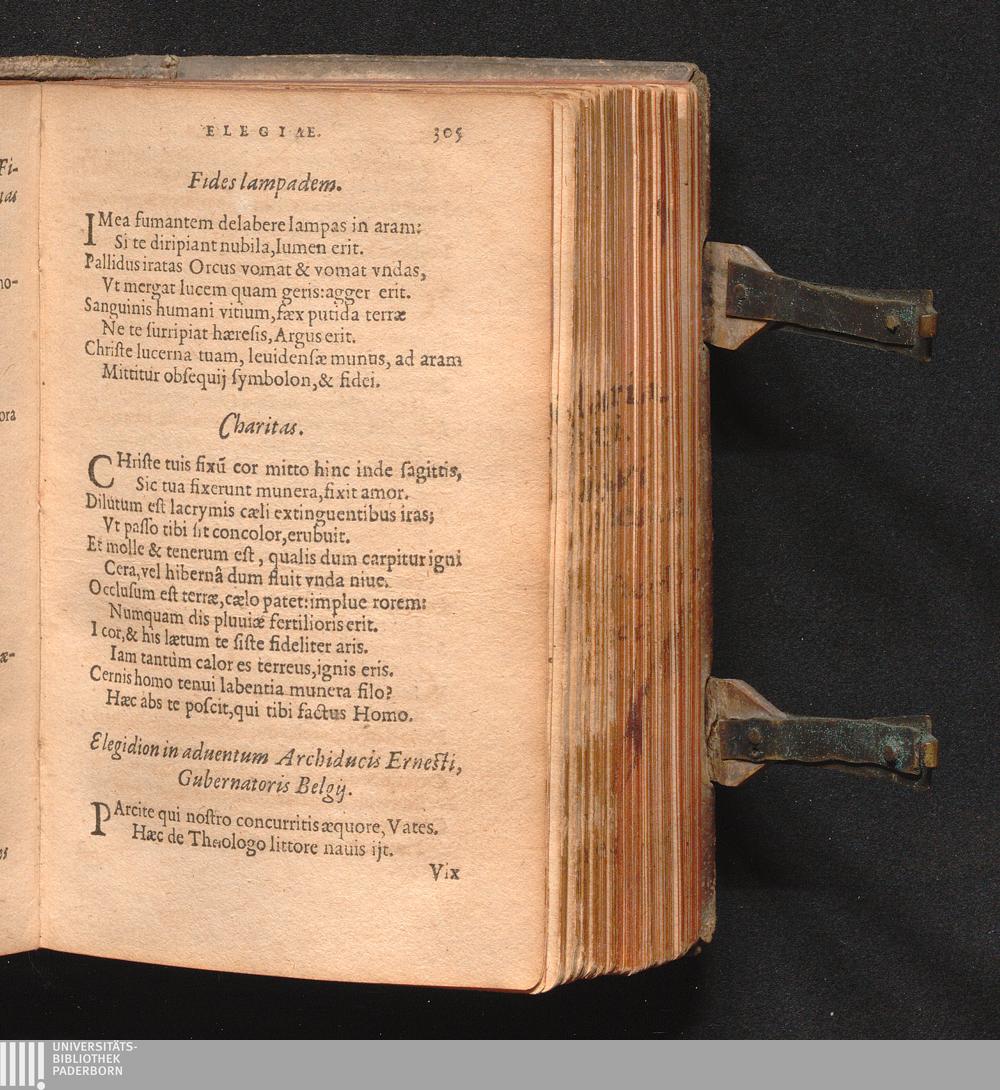 ELEGIAE. 305
Fides lampadem.
IMea fumantem delabere lampas in aram:
Si te diripiant nubila, lumen erit.
Pallidus iratas Orcus vomat & vomat vndas,
Vt mergat lucem quam geris: agger erit.
Sanguinis humani vitium, fæx putida terræ
Ne te surripiat hæresis, Argus erit.
Christe lucerna tuam, leuidensæ munus, ad aram
Mittitur obsequij symbolon, & fidei.
Charitas.
CHriste tuis fixū cor mitto hinc inde sagittis,
Sic tua fixerunt munera, fixit amor.
Dilutum est lacrymis cæli extinguentibus iras;
Vt passo tibi sit concolor, erubuit.
Et molle & tenerum est, qualis dum carpitur igni
Cera, vel hibernâ dum fluit vnda niue.
Occlusum est terræ, cælo patet: implue rorem:
Numquam dis pluuiæ fertilioris erit.
I cor, & his lætum te siste fideliter aris.
Iam tantùm calor es terreus, ignis eris.
Cernis homo tenui labentia munera filo?
Hæc abs te poscit, qui tibi factus Homo.
Elegidion in aduentum Archiducis Ernesti,
Gubernatoris Belgij.
PArcite qui nostro concurritis æquore, Vates.
Hæc de Theologo littore nauis ijt.
Vix
UNIVERSITÄTS-
BIBLIOTHEK
PADERBORN